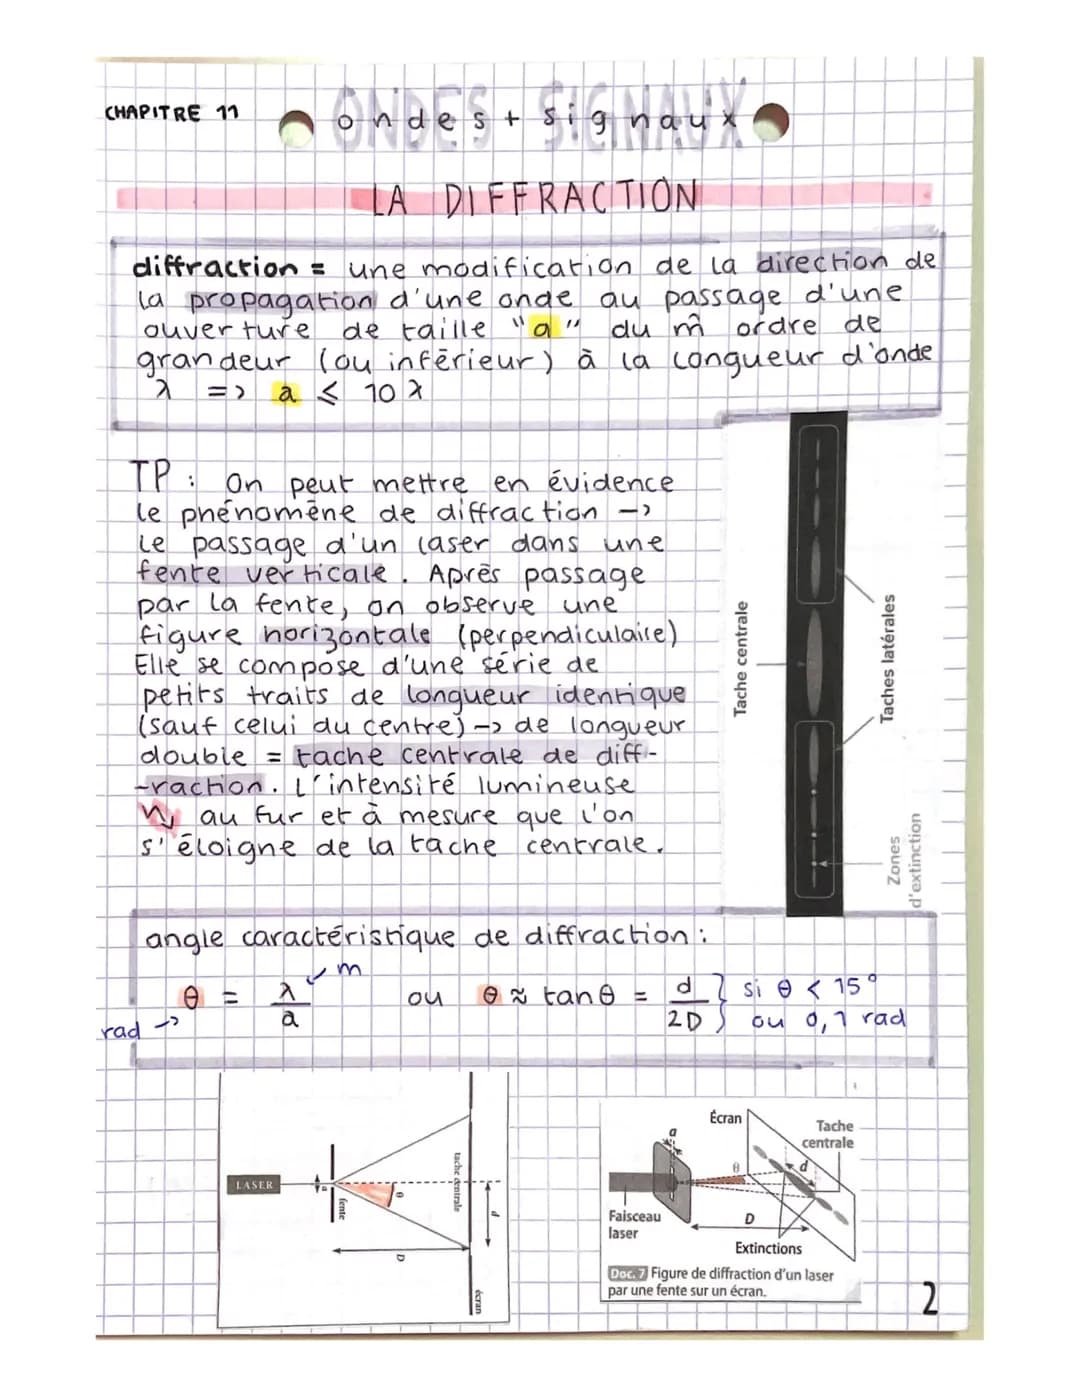 CHAPITRE 11
ONDES SIGNAUX
ondes + signaux
LA DIFFRACTION
diffraction = une modification de la direction de
la propagation d'une onde au passage d'une
ouverture de taille "a" du m̂ ordre de
grandeur (ou inférieur) à la longueur d'onde
λ => a ⩽ 10 λ
TP : On peut mettre en évidence
le phénomène de diffraction ->
le passage d'un laser dans une
fente verticale. Après passage
par la fente, on observe une
figure horizontale (perpendiculaire)
Elle se compose d'une série de
petits traits de longueur identique
(sauf celui du centre) -> de longueur
double = tache centrale de diff-
-raction. L'intensité lumineuse
↘ au fur et à mesure que l'on
s'éloigne de la tache centrale.
Tache centrale
Taches latérales
Zones
d'extinction
angle caractéristique de diffraction :
θ = λ/a ou θ ≈ tanθ = d/2D } si θ < 15°
ou 0,1 rad
m
rad ->
LASER
a
fente
θ
D
tache centrale
d
écran
Écran
Tache
centrale
a
θ
d
D
Faisceau
laser
Extinctions
Doc. 7 Figure de diffraction d'un laser
par une fente sur un écran.
2